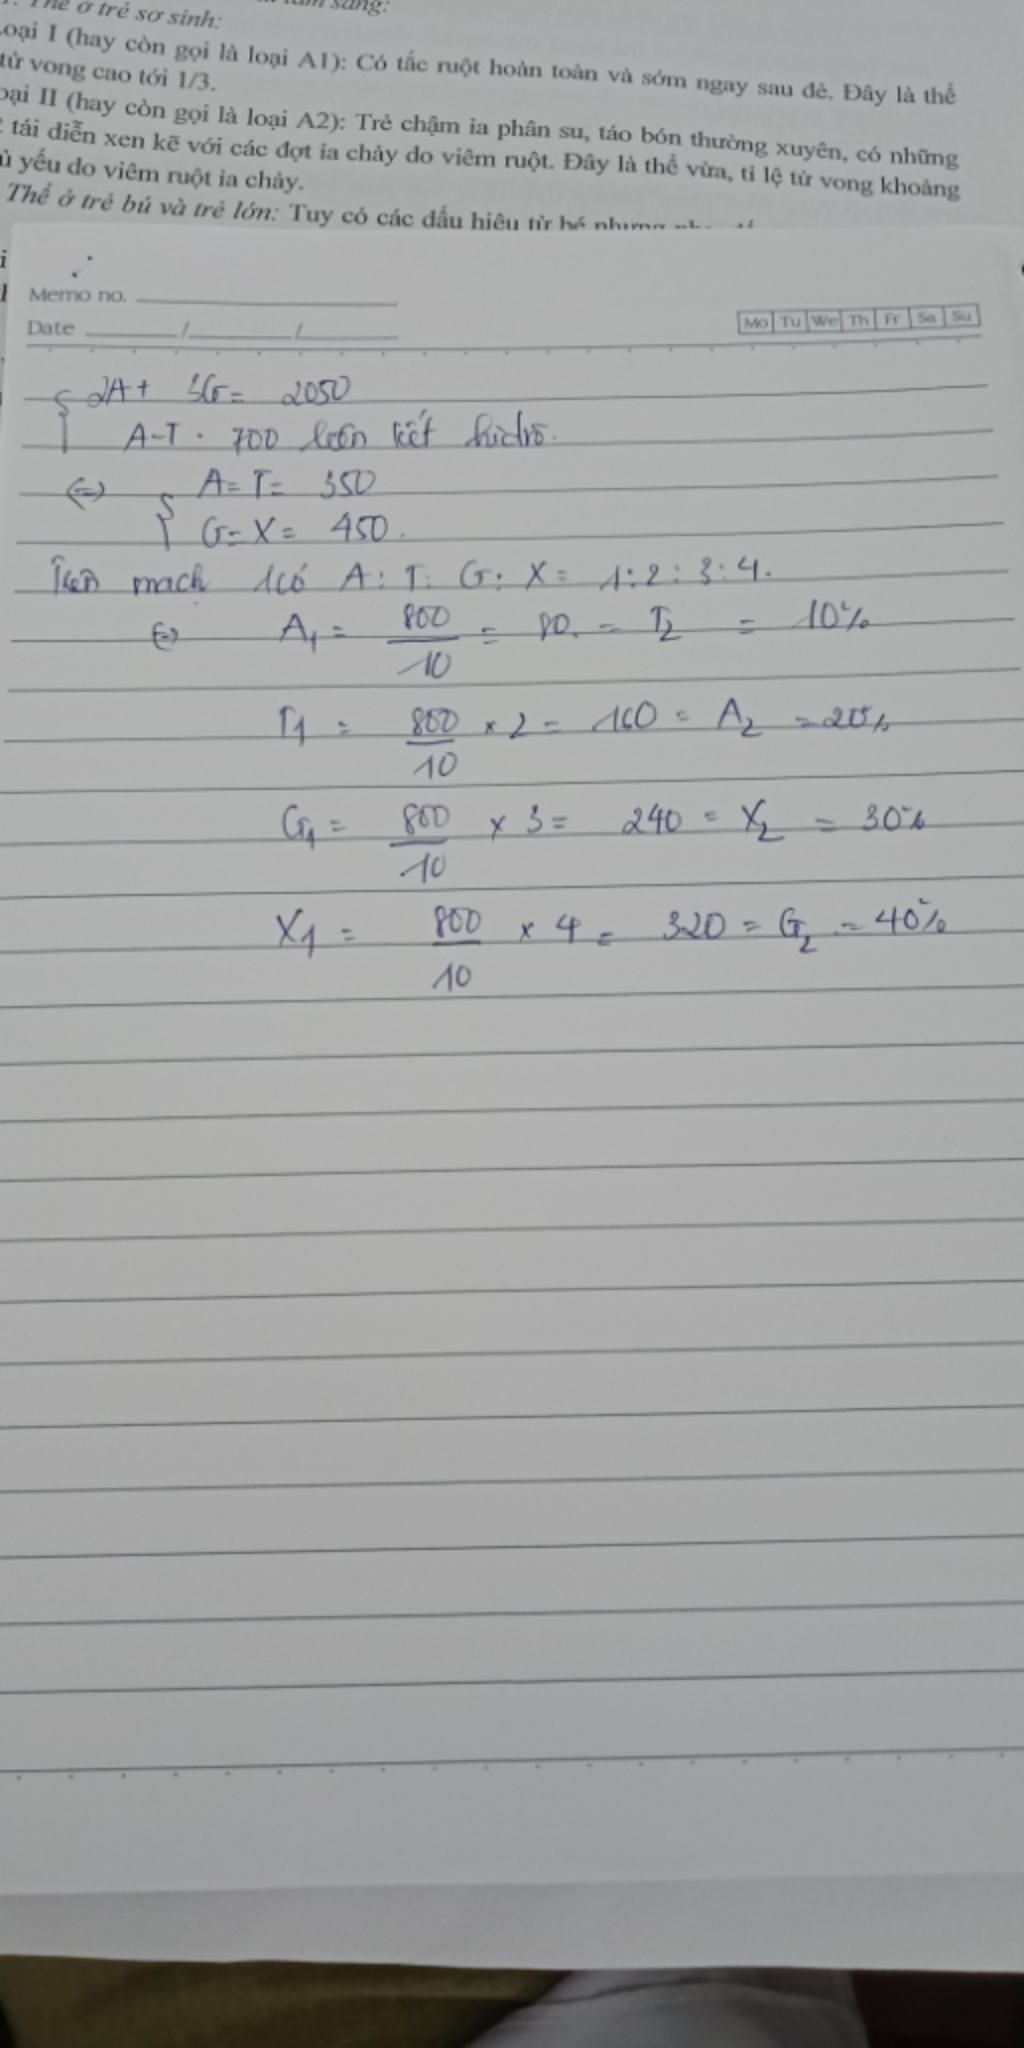 Thể ở trẻ sơ sinh: sàng:
oại I (hay còn gọi là loại A1): Có tắc ruột hoàn toàn và sớm ngay sau đẻ. Đây là thể
tử vong cao tới 1/3.
oại II (hay còn gọi là loại A2): Trẻ chậm ỉa phân su, táo bón thường xuyên, có những
tái diễn xen kẽ với các đợt ỉa chảy do viêm ruột. Đây là thể vừa, tỉ lệ tử vong khoảng
ủ yếu do viêm ruột ỉa chảy.
Thể ở trẻ bú và trẻ lớn: Tuy có các dấu hiệu từ bé nhưng
Memo no.
Date / / Mo Tu We Th Fr Sa Su
2A + 3G = 2050
A-T. 700 liên kết hidro.
<=> A = T = 350
G = X = 450.
Trên mạch 1 có A : T : G : X = 1:2:3:4.
<=> A1 = 800/10 = 80. = T2 = 10%
T1 = 800/10 x 2 = 160 = A2 = 20%
G1 = 800/10 x 3 = 240 = X2 = 30%
X1 = 800/10 x 4 = 320 = G2 = 40%